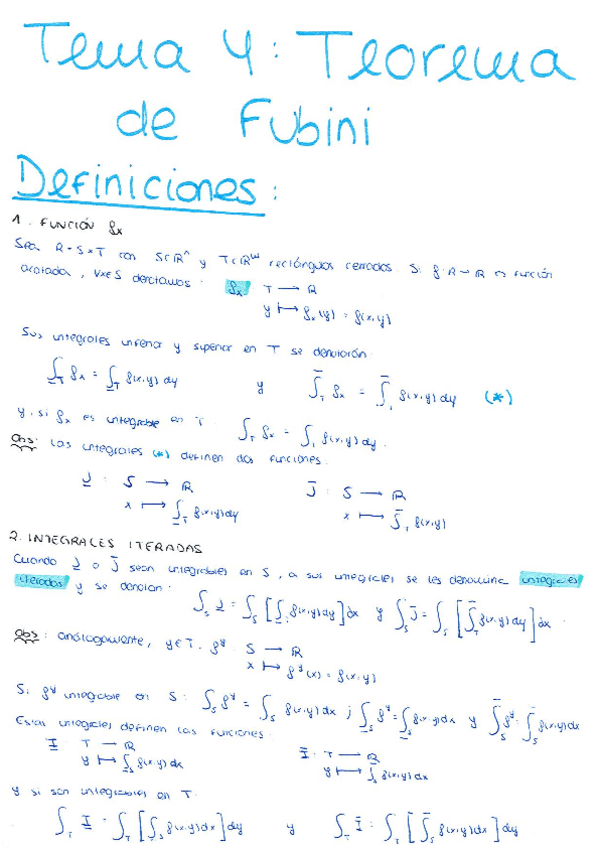 Tema 4: Teorema
de Fubini
Definiciones:
1. FUNCIÓN fx
Sea R = S×T con S⊂ℝⁿ y T⊂ℝᵐ rectángulos cerrados. Si f: R→ℝ es función
acotada, ∀x∈S denotamos: fx T → ℝ
y ↦ fx(y) = f(x,y)
Sus integrales inferior y superior en T se denotarán:
∫_T fx = ∫_T f(x,y) dy y ∫̅_T fx = ∫̅_T f(x,y) dy (*)
y, si fx es integrable en T: ∫_T fx = ∫_T f(x,y) dy.
Obs: Las integrales (*) definen dos funciones:
J̲ : S → ℝ J̅ : S → ℝ
x ↦ ∫̲_T f(x,y) dy x ↦ ∫̅_T f(x,y)
2. INTEGRALES ITERADAS
Cuando J̲ o J̅ sean integrables en S, a sus integrales se les denomina integrales
iteradas y se denotan:
∫_S J̲ = ∫_S [∫̲_T f(x,y) dy] dx y ∫_S J̅ = ∫_S [∫̅_T f(x,y) dy] dx.
Obs: análogamente, y∈T, f^y: S → ℝ
x ↦ f^y(x) = f(x,y)
Si f^y integrable en S: ∫_S f^y = ∫_S f(x,y) dx ; ∫̲_S f^y = ∫̲_S f(x,y) dx y ∫̅_S f^y = ∫̅_S f(x,y) dx
Estas integrales definen las funciones:
I̲ T → ℝ I̅ : T → ℝ
y ↦ ∫̲_S f(x,y) dx y ↦ ∫̅_S f(x,y) dx
y si son integrables en T:
∫_T I̲ = ∫_T [∫̲_S f(x,y) dx] dy y ∫_T I̅ = ∫_T [∫̅_S f(x,y) dx] dy